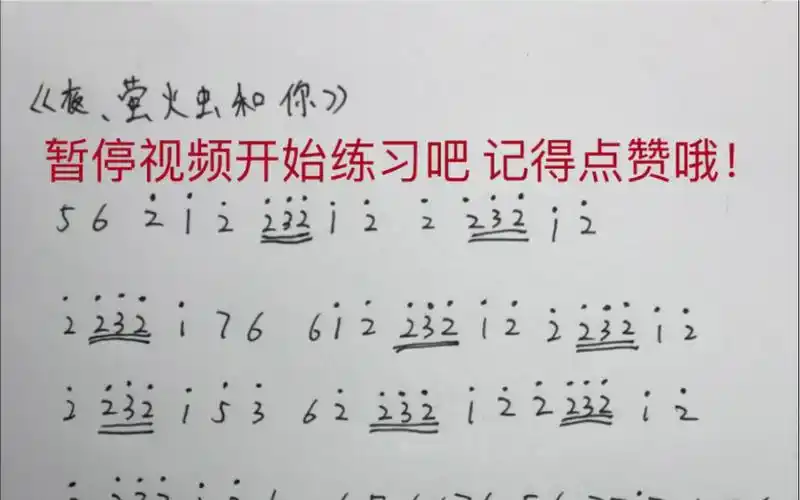 《夜、萤火虫和你》
暂停视频开始练习吧 记得点赞哦！
5 6 2̇ 1̇ 2̇ 2̇3̇2̇ 1̇ 2̇ 2̇ 2̇3̇2̇ 1̇ 2̇
2̇ 2̇3̇2̇ 1̇ 7 6 6 1̇ 2̇ 2̇3̇2̇ 1̇ 2̇ 2̇ 2̇3̇2̇ 1̇ 2̇
2̇ 2̇3̇2̇ 1̇ 5̇ 3̇ 6 2̇ 2̇3̇2̇ 1̇ 2̇ 2̇ 2̇3̇2̇ 1̇ 2̇
2̇ 2̇3̇2̇ 1̇ 2̇